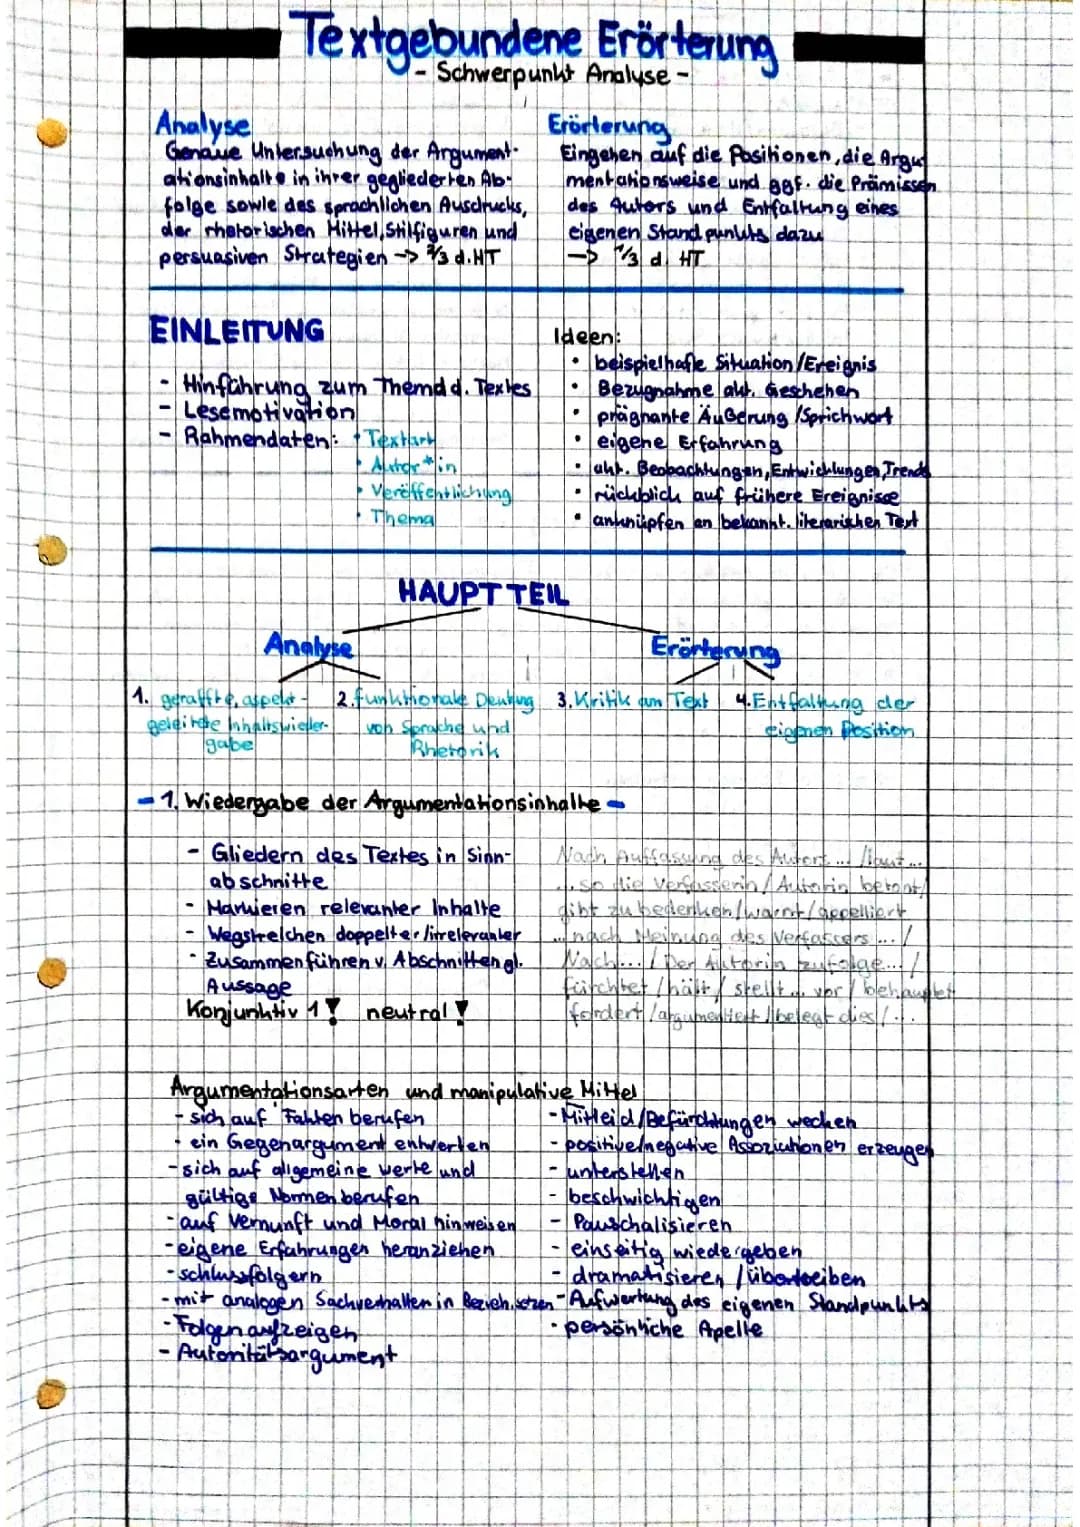 Textgebundene Erörterung
- Schwerpunkt Analyse -
Analyse
Genaue Untersuchung der Argument-
ationsinhalte in ihrer gegliederten Ab-
folge sowie des sprachlichen Ausdrucks,
der rhetorischen Mittel, Stilfiguren und
persuasiven Strategien -> 2/3 d. HT
Erörterung
Eingehen auf die Positionen, die Argu
mentationsweise und ggf. die Prämissen
des Autors und Entfaltung eines
eigenen Standpunkts dazu
-> 1/3 d. HT
EINLEITUNG
- Hinführung zum Thema d. Textes
- Lesemotivation
- Rahmendaten: • Textart
• Autor*in
• Veröffentlichung
• Thema
Ideen:
• beispielhafte Situation/Ereignis
• Bezugnahme akt. Geschehen
• prägnante Äußerung/Sprichwort
• eigene Erfahrung
• akt. Beobachtungen, Entwicklungen, Trends
• rückblick auf frühere Ereignisse
• anknüpfen an bekannt. literarischen Text
HAUPTTEIL
Analyse
Erörterung
1. geraffte, aspekt-
geleitete Inhaltswieder-
gabe
2. funktionale Deutung
von Sprache und
Rhetorik
3. Kritik am Text
4. Entfaltung der
eigenen Position
- 1. Wiedergabe der Argumentationsinhalte -
- Gliedern des Textes in Sinn-
abschnitte
- Markieren relevanter Inhalte
- Wegstreichen doppelter/irrelevanter
- Zusammenführen v. Abschnitten gl.
Aussage
Konjunktiv 1! neutral!
Nach Auffassung des Autors ... /laut ...
... so die Verfasserin/Autorin betont/
gibt zu bedenken/warnt/appelliert
... nach Meinung des Verfassers ... /
Nach ... / Der Autorin zufolge ... /
fürchtet/hält/stellt ... vor/behauptet
fordert/argumentiert/belegt dies/...
Argumentationsarten und manipulative Mittel
- sich auf Fakten berufen
- ein Gegenargument entwerten
- sich auf allgemeine Werte und
gültige Normen berufen
- auf Vernunft und Moral hinweisen
- eigene Erfahrungen heranziehen
- schlussfolgern
- mit analogen Sachverhalten in Bezieh. setzen
- Folgen aufzeigen
- Autoritätsargument
- Mitleid/Befürchtungen wecken
- positive/negative Assoziationen erzeugen
- unterstellen
- beschwichtigen
- Pauschalisieren
- einseitig wiedergeben
- dramatisieren/übertreiben
- Aufwertung des eigenen Standpunkts
- persönliche Apelle